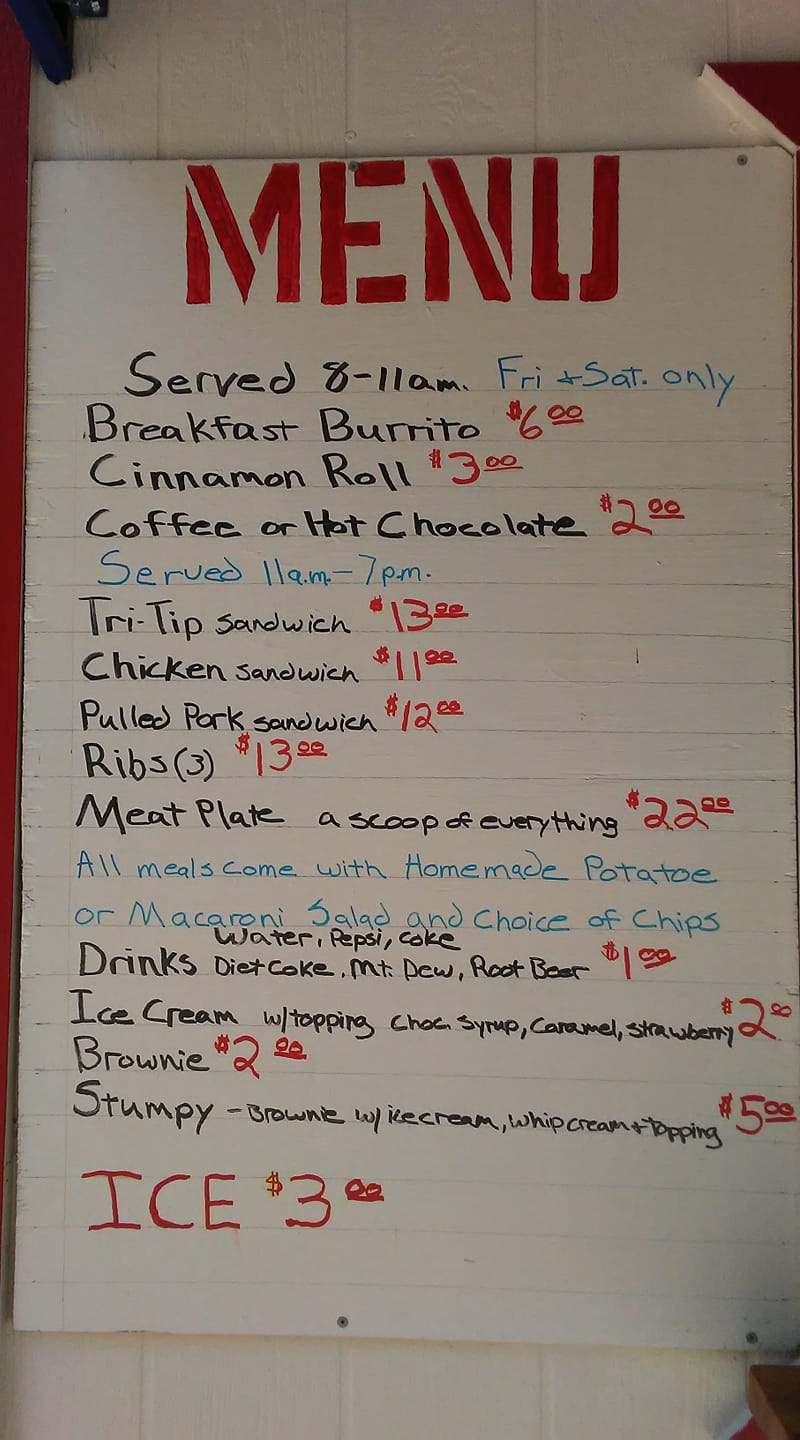 MENU
Served 8-11am. Fri + Sat. only
Breakfast Burrito $6.00
Cinnamon Roll $3.00
Coffee or Hot Chocolate $2.00
Served 11a.m.-7p.m.
Tri-Tip sandwich $13.00
Chicken sandwich $11.00
Pulled Pork sandwich $12.00
Ribs (3) $13.00
Meat Plate a scoop of everything $22.00
All meals come with Homemade Potatoe
or Macaroni Salad and Choice of Chips
Water, Pepsi, Coke
Drinks Diet Coke, Mt. Dew, Root Beer $1.00
Ice Cream w/topping Choc. Syrup, Caramel, Strawberry $2.00
Brownie $2.00
Stumpy - Brownie w/icecream, whip cream + topping $5.00
ICE $3.00